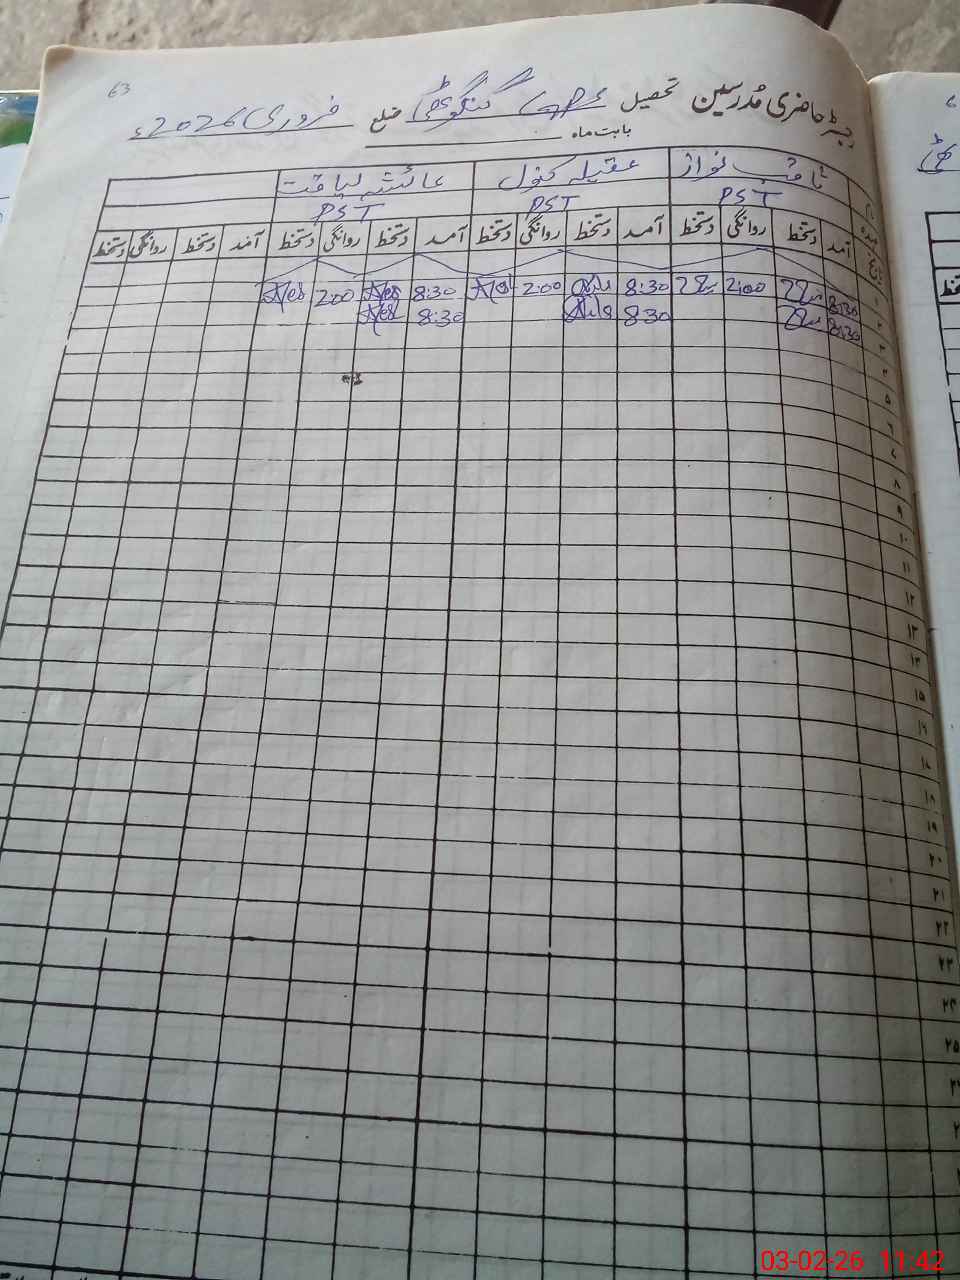 63
رجسٹر حاضری مُدرسین تحصیل GPS گنگوٹھی ضلع فروری 2026ء
بابت ماہ
ثاقب نواز عقیلہ کنول عائشہ لیاقت
PST PST PST
آمد دستخط روانگی دستخط آمد دستخط روانگی دستخط آمد دستخط روانگی دستخط آمد دستخط روانگی دستخط
تاریخ
۱ 8:30 2:00 8:30 2:00 8:30 2:00
۲ 8:30 8:30 8:30
۳
۴
۵
۶
۷
۸
۹
۱۰
۱۱
۱۲
۱۳
۱۴
۱۵
۱۶
۱۷
۱۸
۱۹
۲۰
۲۱
۲۲
۲۳
۲۴
۲۵
03-02-26 11:42